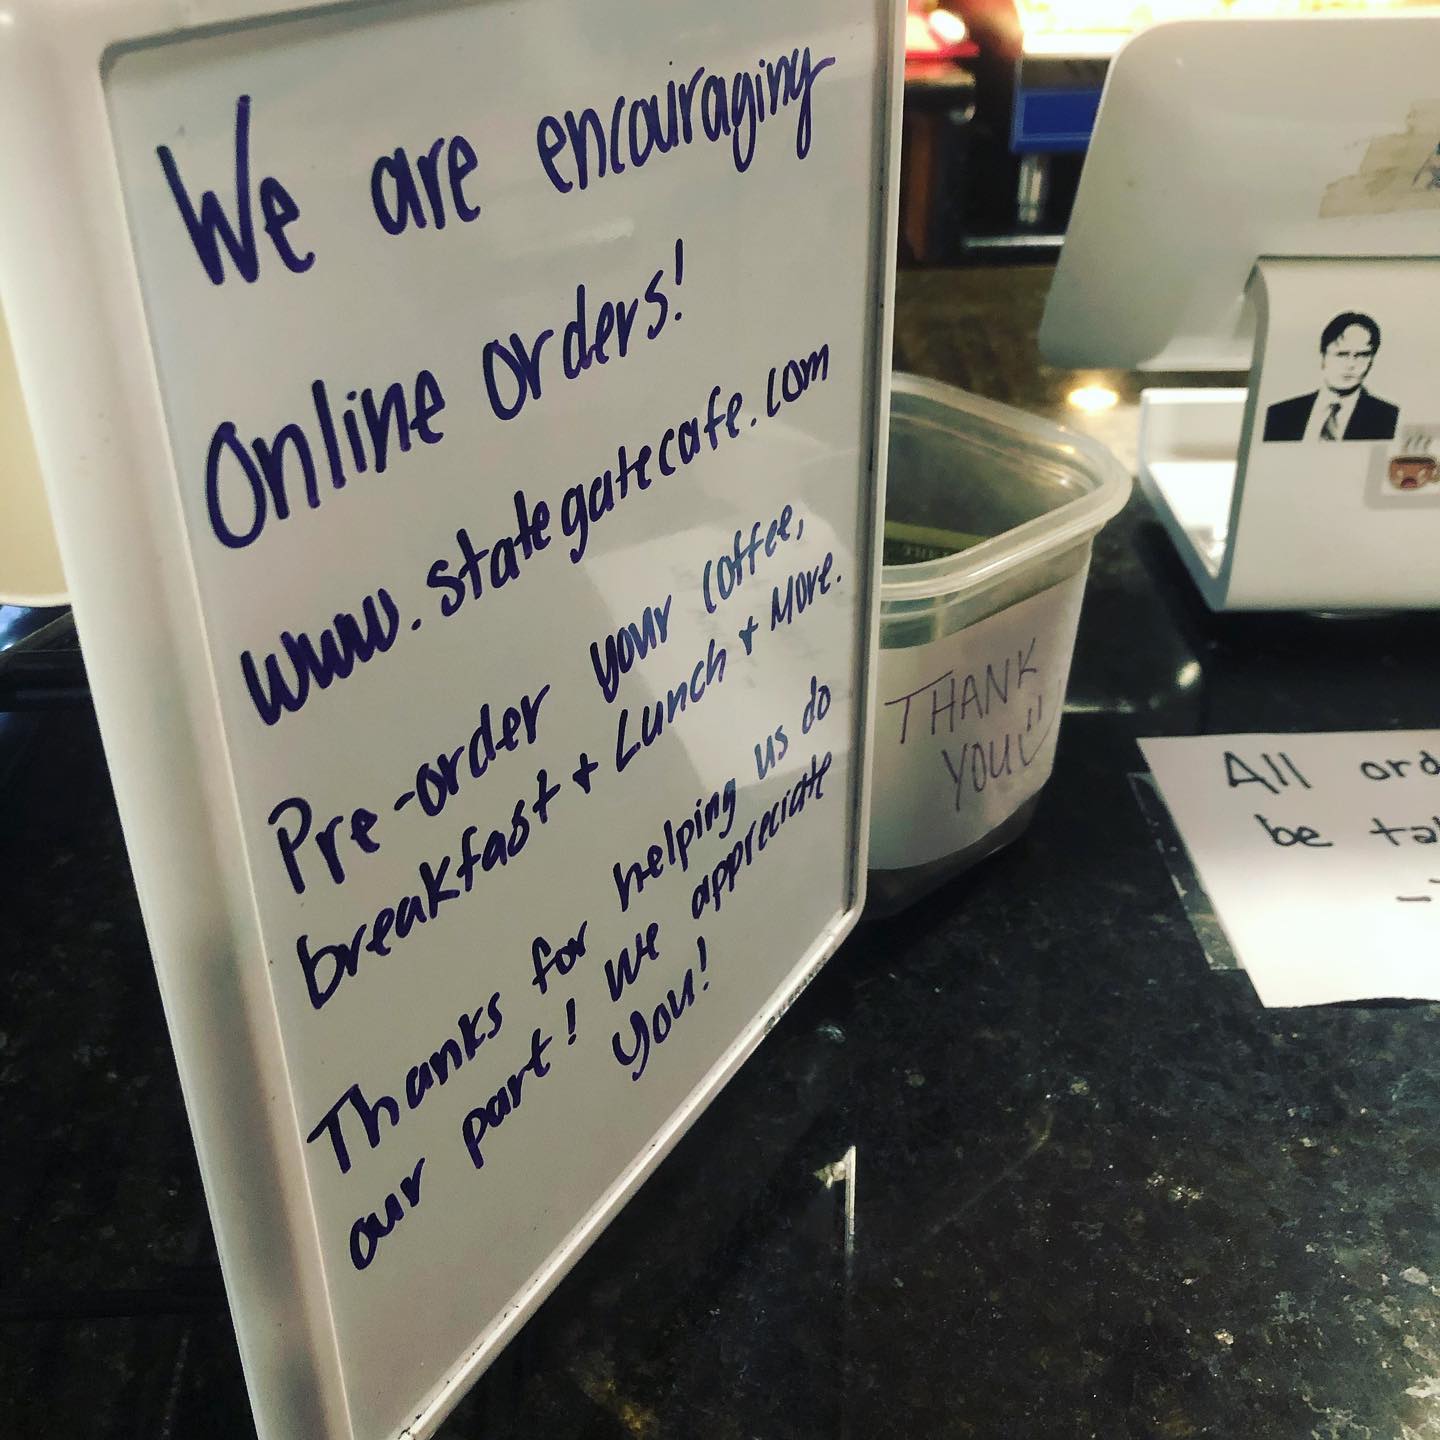 We are encouraging
Online orders!
www.stategatecafe.com
Pre-order your coffee,
breakfast + Lunch + More.
Thanks for helping us do
our part! We appreciate
you!
THANK
YOU
All ord
be ta